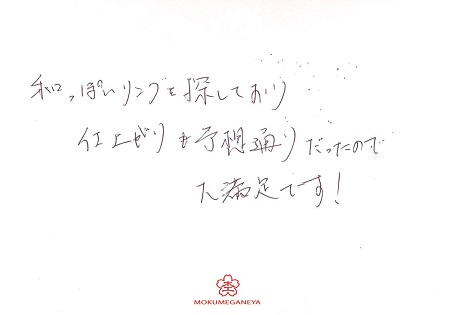 和っぽいリングを探しており
仕上がりも予想通りだったので
大満足です!
MOKUMEGANEYA